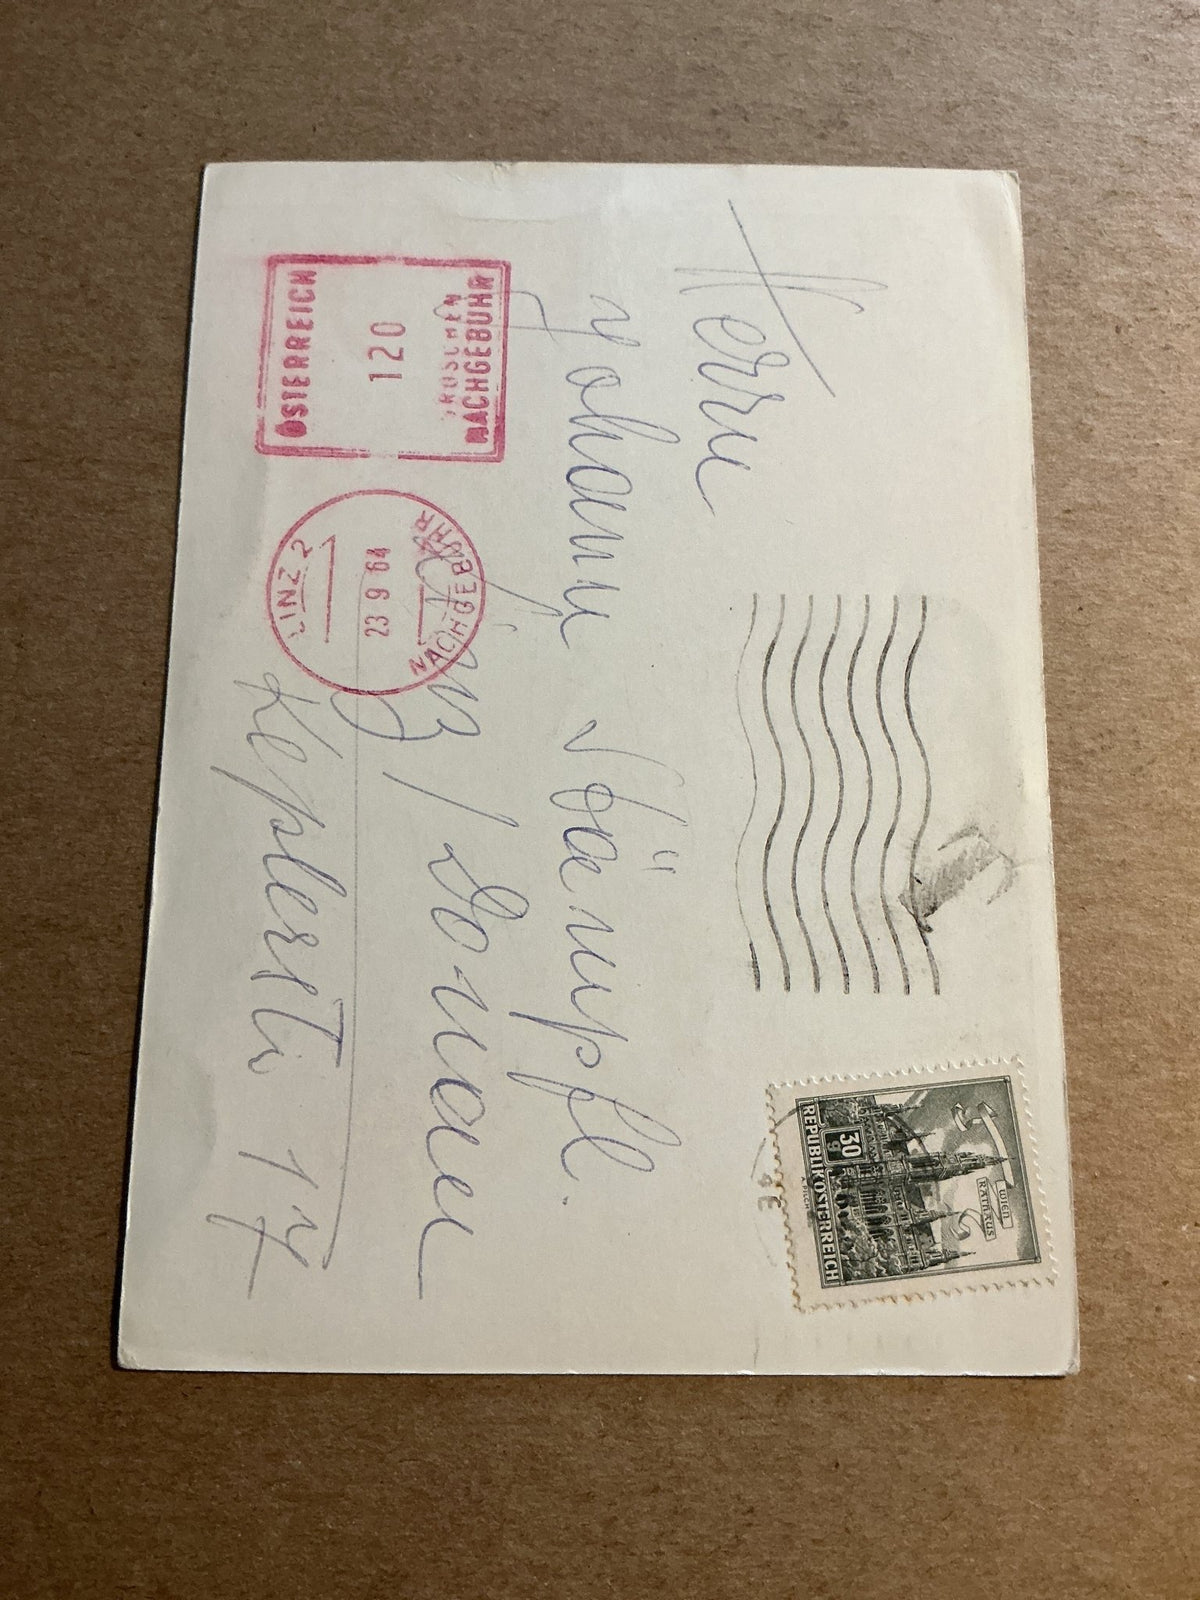 Herrn
Johann
Linz / Donau
Keplerstr. 17
ÖSTERREICH
120
GROSCHEN
NACHGEBÜHR
LINZ 2
23 9 64
NACHGEBÜHR
WIEN
RATHAUS
30 g
REPUBLIK ÖSTERREICH